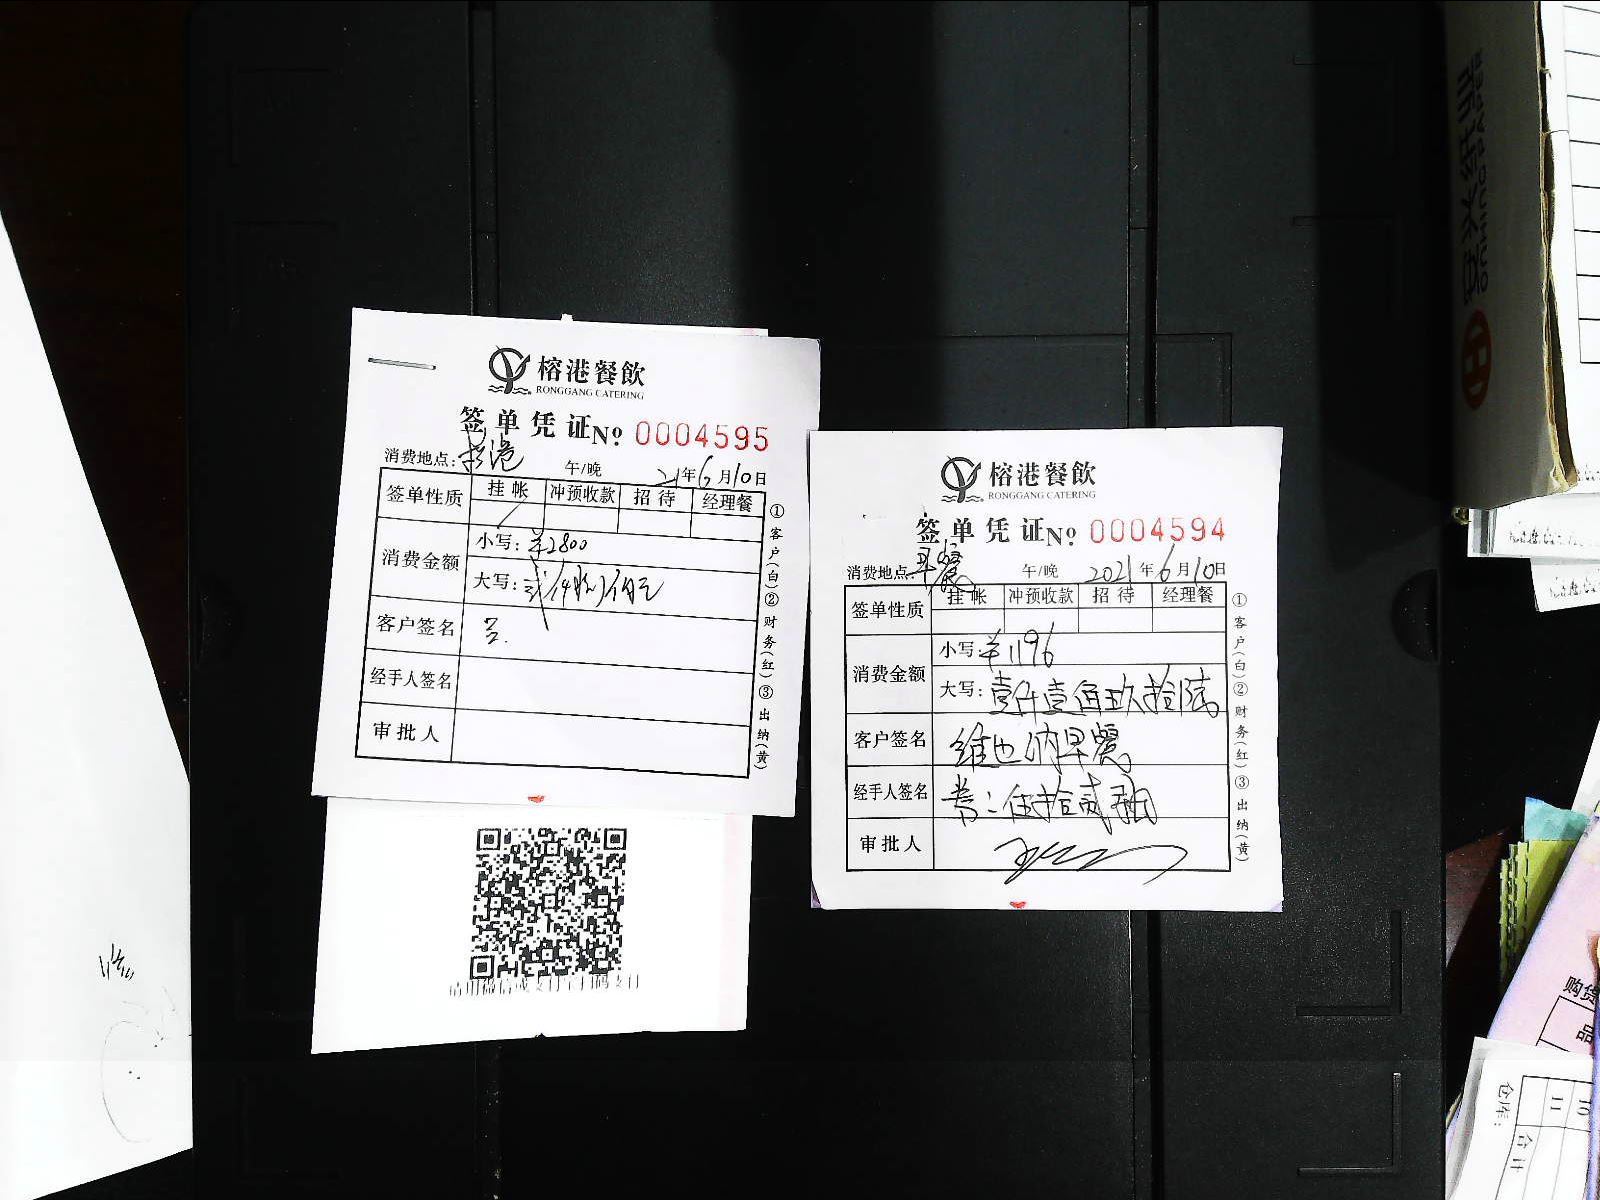 榕港餐飲
RONGGANG CATERING
签单凭证 № 0004595
消费地点: 午/晚 21年6月10日
签单性质 挂帐 冲预收款 招待 经理餐
消费金额 小写: ¥2800
大写: 贰仟捌佰元
客户签名
经手人签名
审批人
①客户(白)②财务(红)③出纳(黄)
榕港餐飲
RONGGANG CATERING
签单凭证 № 0004594
消费地点: 早餐 午/晚 2021年6月10日
签单性质 挂帐 冲预收款 招待 经理餐
消费金额 小写: ¥1196
大写: 壹仟壹佰玖拾陆
客户签名 维也纳早餐
经手人签名 券:伍拾贰张
审批人
①客户(白)②财务(红)③出纳(黄)
请用微信或支付宝扫码支付
购货
品
仓库:
合计
10
11